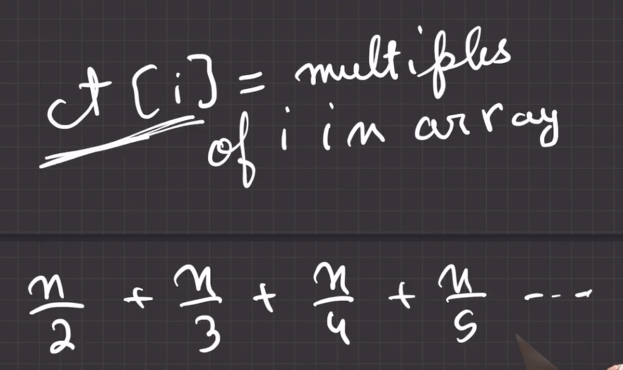 ct[i] = multiples
of i in array
n/2 + n/3 + n/4 + n/5 ---